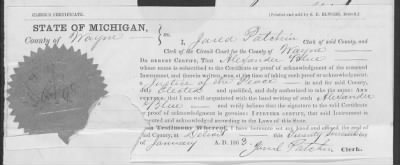 CLERK'S CERTIFICATE. (Printed and sold by S. D. ELWOOD, Detroit.)
STATE OF MICHIGAN,
County of Wayne ss. I, Jared Patchin Clerk of said County, and
Clerk of the Circuit Court for the County of Wayne
DO HEREBY CERTIFY, That Alexander Blue
whose name is subscribed to the Certificate or proof of acknowledgment of the annexed
Instrument, and therein written, was at the time of taking such proof or acknowledgment,
a Justice of the Peace in and for said County,
duly Elected and qualified, and duly authorized to take the same: AND
FURTHER, that I am well acquainted with the hand writing of such Alexander
Blue and verily believe that the signature to the said Certificate
or proof of acknowledgment is genuine. I FURTHER CERTIFY, that said instrument
is executed and acknowledged according to the Laws of this State.
In Testimony Whereof, I have hereunto set my hand and affixed the seal of
said County, at Detroit this Twenty
January A. D. 1863
Jared Patchin Clerk.